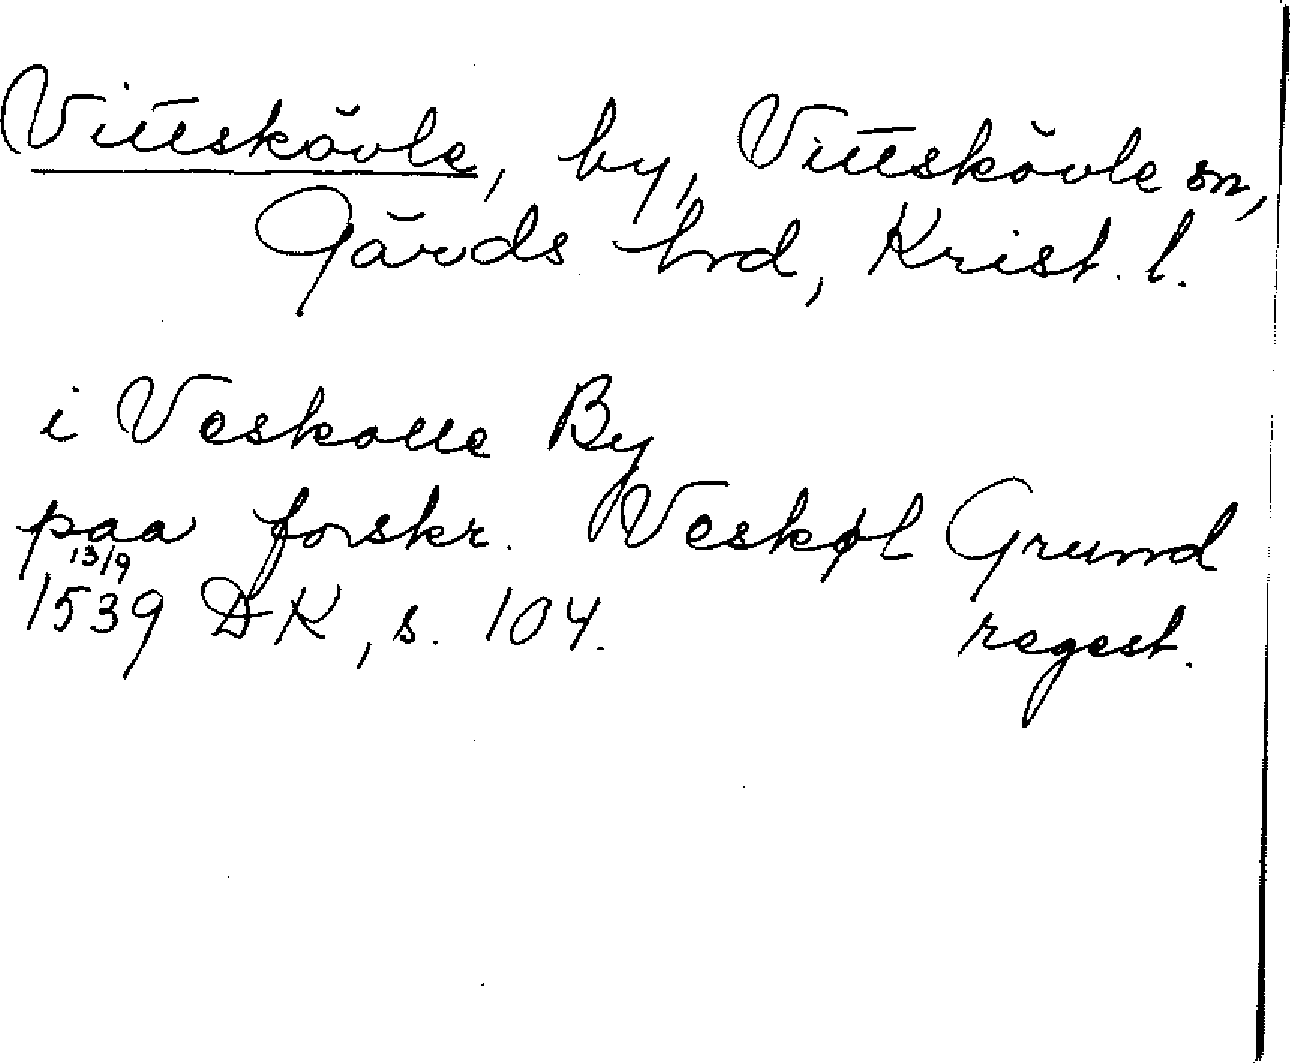 Vittskövle, by, Vittskövle sn,
Gärds hrd, Krist. l.
i Veskolle By
paa forskr. Veskøl Grund
13/9
1539 DK, s. 104. regest.